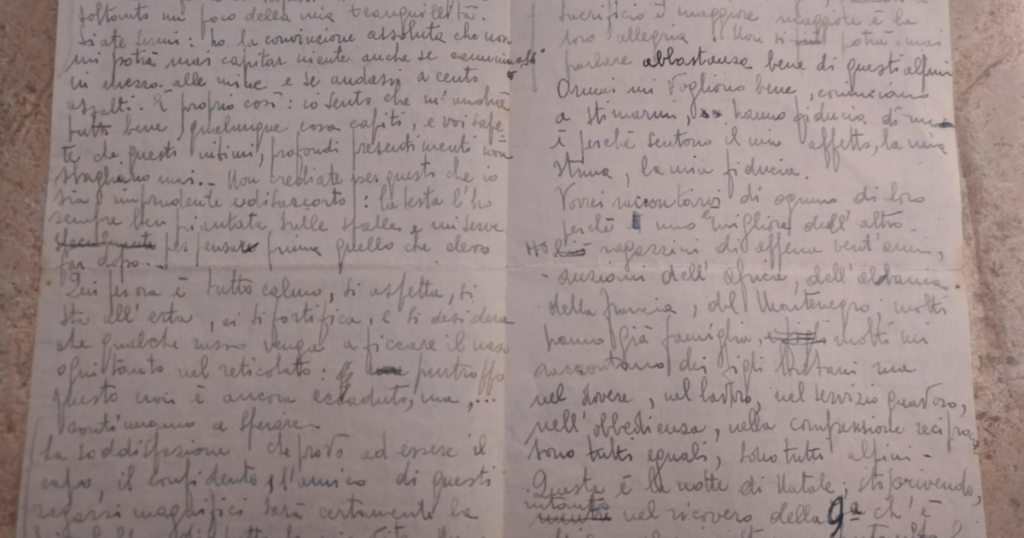 soltanto un poco della mia tranquillità.
Siate sereni: ho la convinzione assoluta che non
mi potrà mai capitar niente anche se camminassi
in mezzo alle mine e se andassi a cento
assalti. È proprio così: io sento che m'andrà
tutto bene, qualunque cosa capiti, e voi sape-
te che questi intimi, profondi presentimenti non
sbagliano mai. Non crediate per questo che io
sia imprudente: la testa l'ho
sempre ben piantata sulle spalle e mi serve
per pensare prima quello che devo
far dopo.
Qui per ora è tutto calmo, si aspetta, si
sta all'erta, ci si fortifica, e si desidera
che qualche russo venga a ficcare il naso
ogni tanto nel reticolato: purtroppo
questo non è ancora accaduto, ma,...
continuiamo a sperare.
La soddisfazione che provo ad essere il
capo, il confidente, l'amico di questi
ragazzi magnifici sarà certamente la
sacrificio è maggiore maggiore è la
loro allegria. Non si potrà mai
parlare abbastanza bene di questi alpini
Ormai mi vogliono bene, cominciano
a stimarmi, hanno fiducia di me
è perché sentono il mio affetto, la mia
stima, la mia fiducia.
Vorrei raccontarvi di ognuno di loro
perché uno è migliore dell'altro.
Ho ragazzini di appena vent'anni,
anziani dell'Africa, dell'Albania
della Francia, del Montenegro, molti
hanno già famiglia, molti mi
raccontano dei figli lontani ma
nel dovere, nel lavoro, nel servizio gravoso,
nell'obbedienza, nella comprensione recipro
sono tutti eguali, sono tutti alpini -
Questa è la notte di Natale; sto scrivendo,
intanto nel ricovero della 9ª ch'è